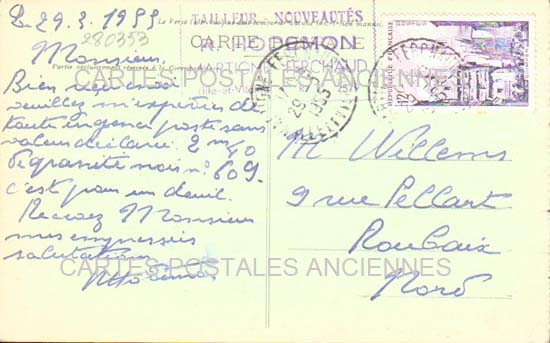 Le 29.3.1955
280353
TAILLEUR NOUVEAUTÉS
CARTE POSTALE
MARTIGNÉ-FERCHAUD
Ille-et-Vil
Monsieur
CARTES POSTALES ANCIENNES
Bien reçu envoi
veuillez m'expédier de
toute urgence poste sans
valeur déclarée 2 m 40
de granité noir n° 609.
c'est pour un deuil.
Recevez Monsieur
mes empressées
salutations
29 -3
1953
REPUBLIQUE FRANÇAISE
12F
M Willems
9 rue Pellart
Roubaix
Nord
CARTES POSTALES ANCIENNES